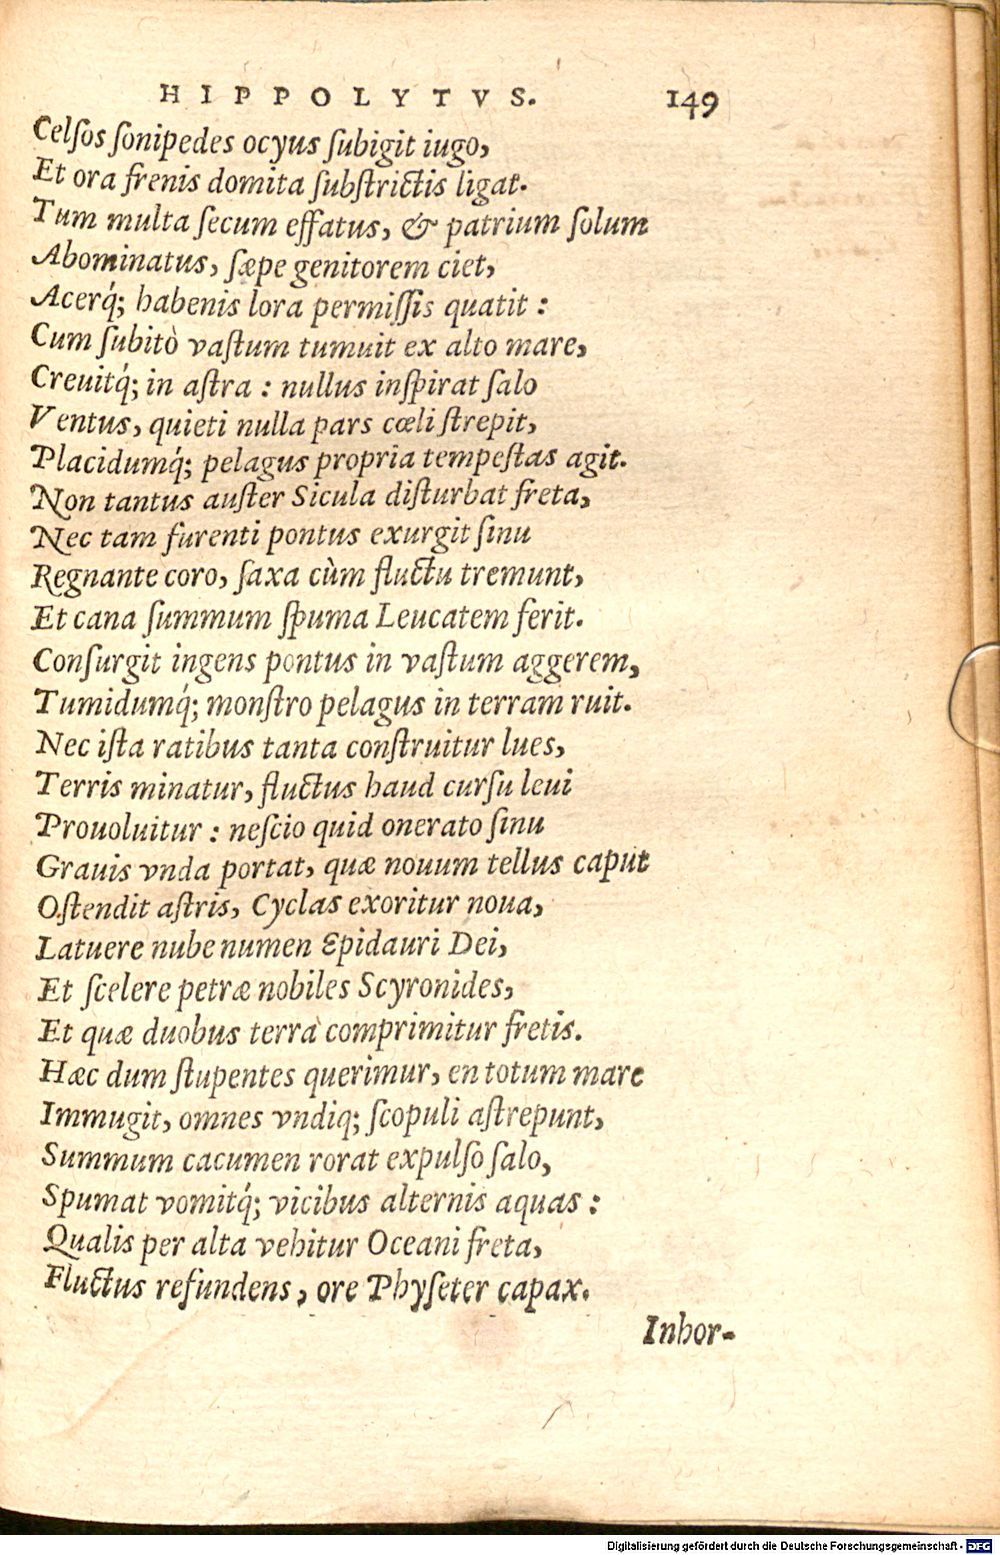 HIPPOLYTVS. 149
Celſos ſonipedes ocyus ſubigit iugo,
Et ora frenis domita ſubſtrictis ligat.
Tum multa ſecum effatus, & patrium ſolum
Abominatus, ſæpe genitorem ciet,
Acerq́; habenis lora permiſſis quatit :
Cum ſubitò vaſtum tumuit ex alto mare,
Creuitq́; in aſtra : nullus inſpirat ſalo
Ventus, quieti nulla pars cœli ſtrepit,
Placidumq́; pelagus propria tempeſtas agit.
Non tantus auſter Sicula diſturbat freta,
Nec tam furenti pontus exurgit ſinu
Regnante coro, ſaxa cùm fluctu tremunt,
Et cana ſummum ſpuma Leucatem ferit.
Conſurgit ingens pontus in vaſtum aggerem,
Tumidumq́; monſtro pelagus in terram ruit.
Nec iſta ratibus tanta conſtruitur lues,
Terris minatur, fluctus haud curſu leui
Prouoluitur : neſcio quid onerato ſinu
Grauis vnda portat, quæ nouum tellus caput
Oſtendit aſtris, Cyclas exoritur noua,
Latuere nube numen Epidauri Dei,
Et ſcelere petræ nobiles Scyronides,
Et quæ duobus terra comprimitur fretis.
Hæc dum ſtupentes querimur, en totum mare
Immugit, omnes vndiq; ſcopuli aſtrepunt,
Summum cacumen rorat expulſo ſalo,
Spumat vomitq́; vicibus alternis aquas :
Qualis per alta vehitur Oceani freta,
Fluctus refundens, ore Phyſeter capax.
Inhor-
Digitalisierung gefördert durch die Deutsche Forschungsgemeinschaft - DFG